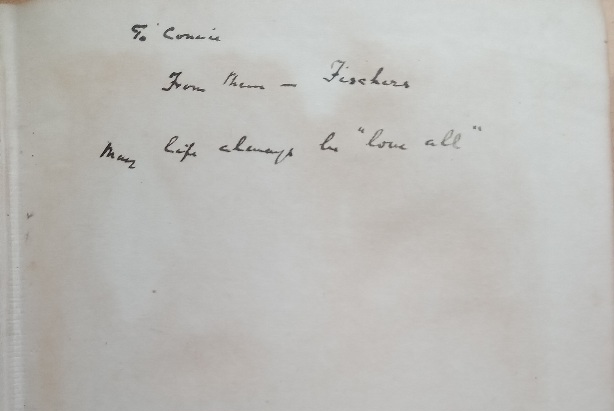 To Connie
From them — Fischers
May life always be "love all"